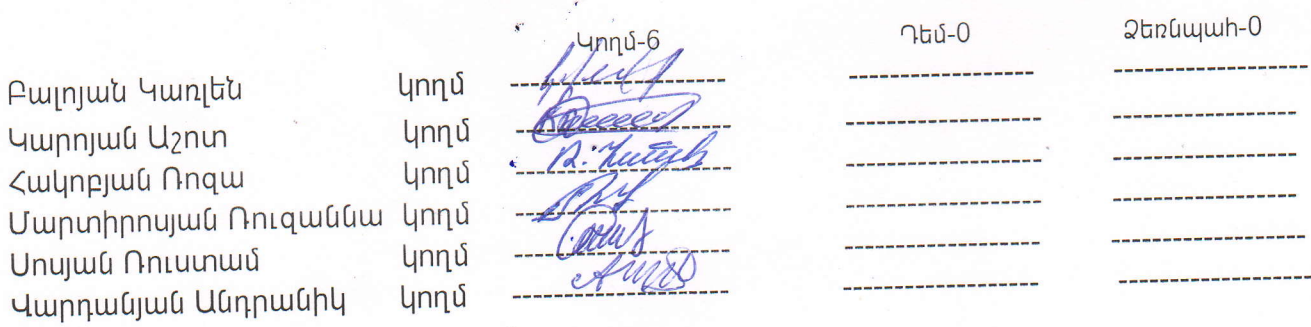 Կողմ-6 Դեմ-0 Ձեռնպահ-0
Բալոյան Կառլեն կողմ
Կարոյան Աշոտ կողմ
Հակոբյան Ռոզա կողմ
Մարտիրոսյան Ռուզաննա կողմ
Սոսյան Ռուստամ կողմ
Վարդանյան Անդրանիկ կողմ